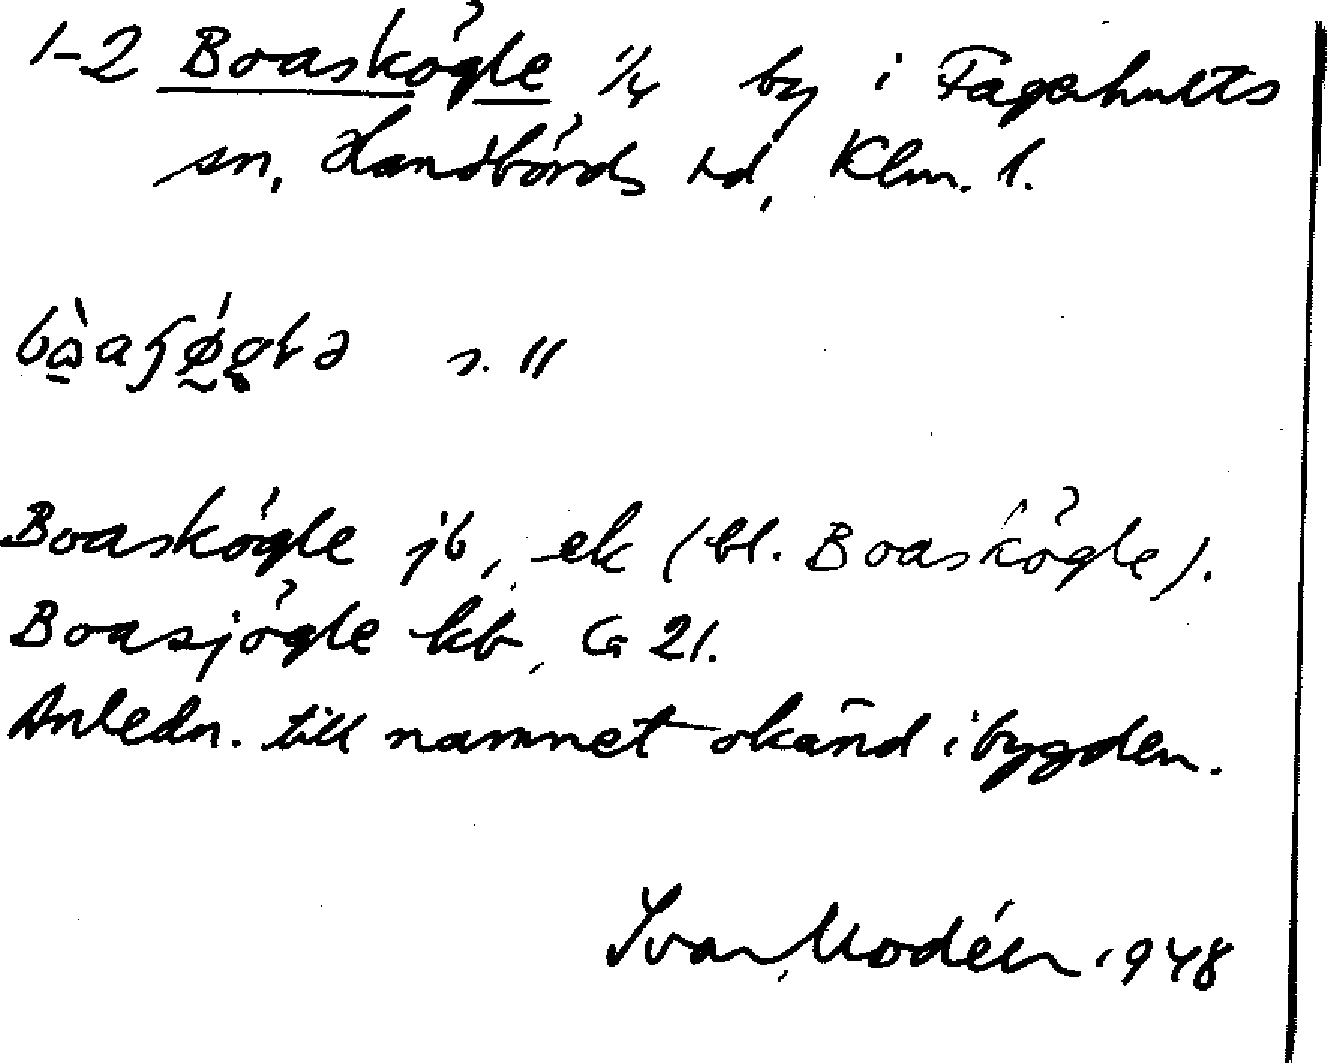 1-2 Boaskögle 1/4 by i Fagerhults
sn, Handbörds hd, Klm. l.
s. "
Boaskögle jb, ek (bl. Boaskögle).
Boasjögle kb, G 21.
Anledn. till namnet okänd i bygden.
Ivar Modéer 1948